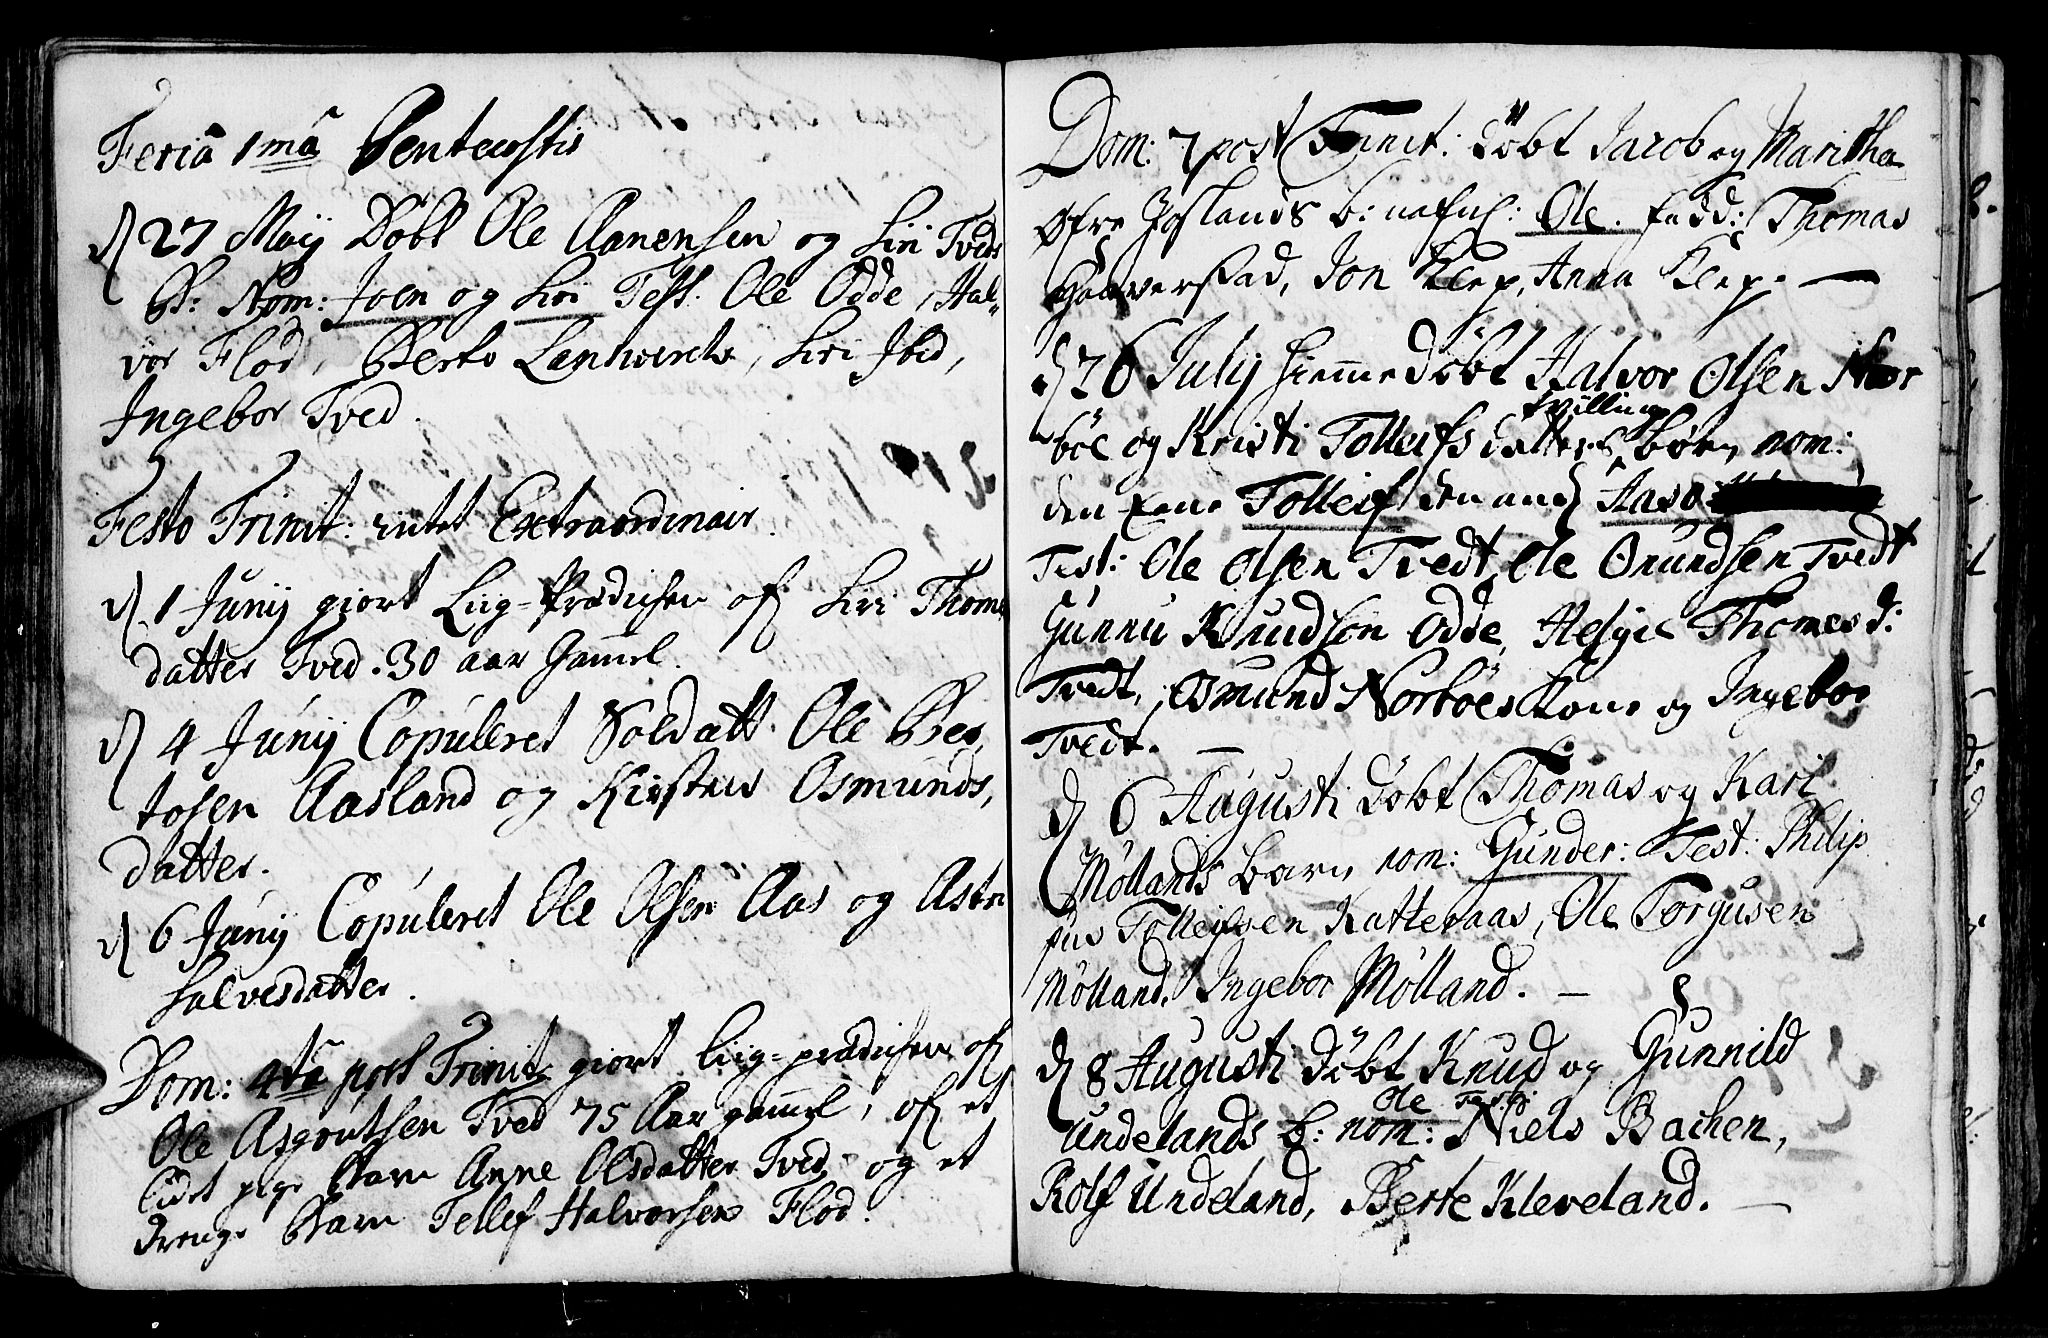 Feriâ 1mâ Pentecostis
d 27 Maÿ Döbt Ole Aanensen og Siri Tveds
B: Nom: Joen og Siri Test: Ole Odde, Hal-
vor Flod, Berte Lanhverck, Siri Ibid,
Ingebor Tved.
Festo Trinit: intet Extraordinair.
d. 1 Junÿ giort Liig-Prædichen af Siri Thoms
datter Tved. 30 aar Gamel.
d 4 Junÿ Copuleret Soldatt Ole Ber,
tosen Aasland og Kirsten Osmunds,
datter.
d 6 Junÿ Copuleret Ole Olsen Aas og Astri
Salvesdatter.
Dom: 4ta post Trinit giort Liig-prædichen af
Ole Asgoutsen Tved 75 Aar gamel, af et
lidet pige Barn Anne Olsdatter Tved, og et
drenge Barn Tellef Halvorsen Flod.
Dom: 7 post Trinit: döbt Jacob og Maritha
Øfre Joslands b: nafnl: Ole. fadd: Thomas
Haaverstad, Jon Klep, Anna Klep. —
d 26 July Hiemmedöbt Halvor Olsen Nor
tvilling
böe og Kristi Tolleifs datters börn nom:
den Eene Tolleif den and Aaso
Test: Ole Olsen Tvedt, Ole Onundsen Tvedt
Gunnu Knudson Odde, Helgie Thomes d:
Tvedt, Osmund Norböes Kone og Ingebor
Tvedt. —
d 6 Augusti Döbt Thomas og Kari
Möllands barn nom: Gunder: Test: Philip
pus Tolleifsen Katteraas, Ole Torgusen
Mölland, Ingebor Mölland. —
d 8 Augusti Döbt Knud og Gunnild
Ole Test:
Undelands b: nom: Niels Bachen,
Rolf Undeland, Berte Kleveland. —